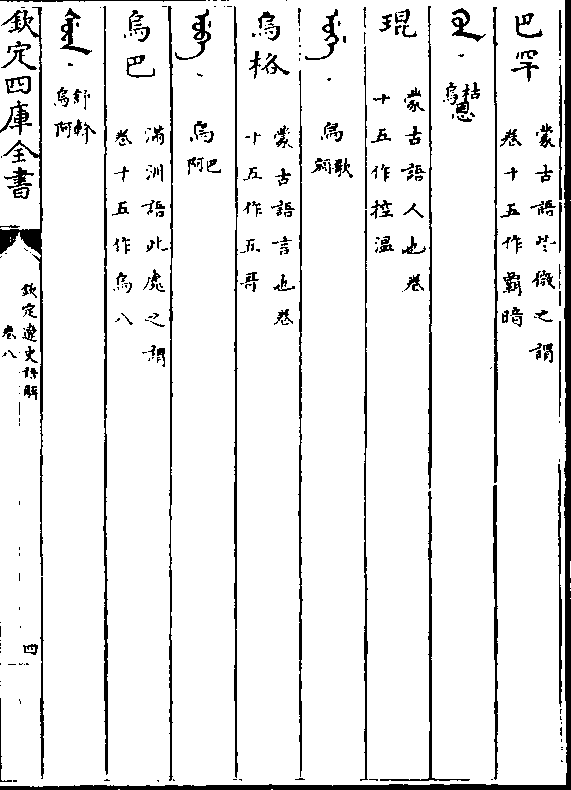 巴罕
蒙古語些微之謂
卷十五作霸暗
枯烏恩
琨
蒙古語人也卷
十五作控溫
烏歌額
烏格
蒙古語言也卷
十五作五哥
烏巴阿
烏巴
滿洲語此處之謂
卷十五作烏八
舒斡
烏阿
欽定四庫全書
欽定遼史語解
卷八
四